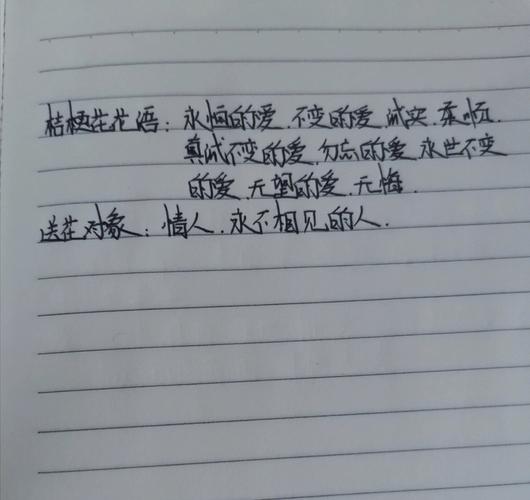 桔梗花花语：永恒的爱.不变的爱.诚实.柔顺.
真诚不变的爱.勿忘的爱.永世不变
的爱.无望的爱.无悔.
送花对象：情人.永不相见的人.